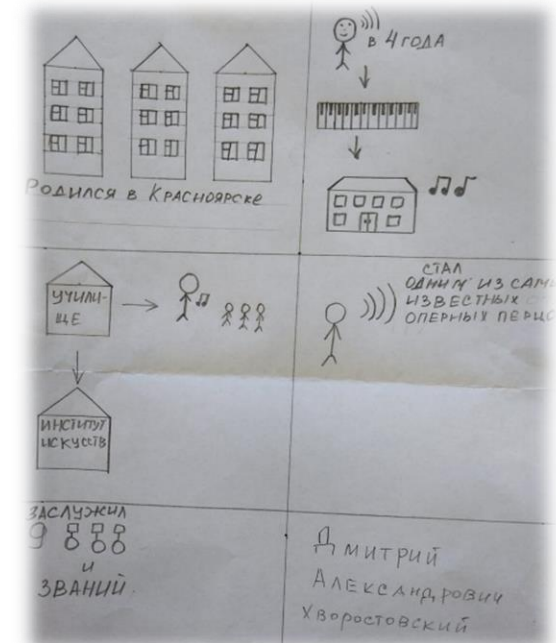 Родился в Красноярске
в 4 года
учили-
ще
институт
искусств
стал
одним из
известных
оперных
заслужил
9
и
званий
Дмитрий
Александрович
Хворостовский